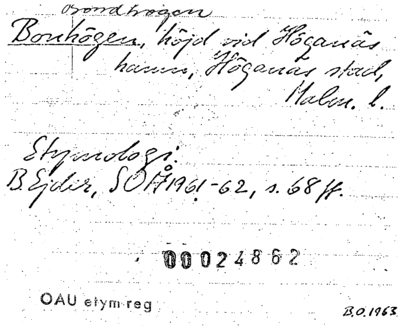 Bondhögen
Bonhögen, höjd vid Höganäs
hamn, Höganäs stad,
Malm. l.
Etymologi:
B Ejder, SOÅ 1961-62, s. 68 ff.
00024862
OAU etym reg
B.O. 1963